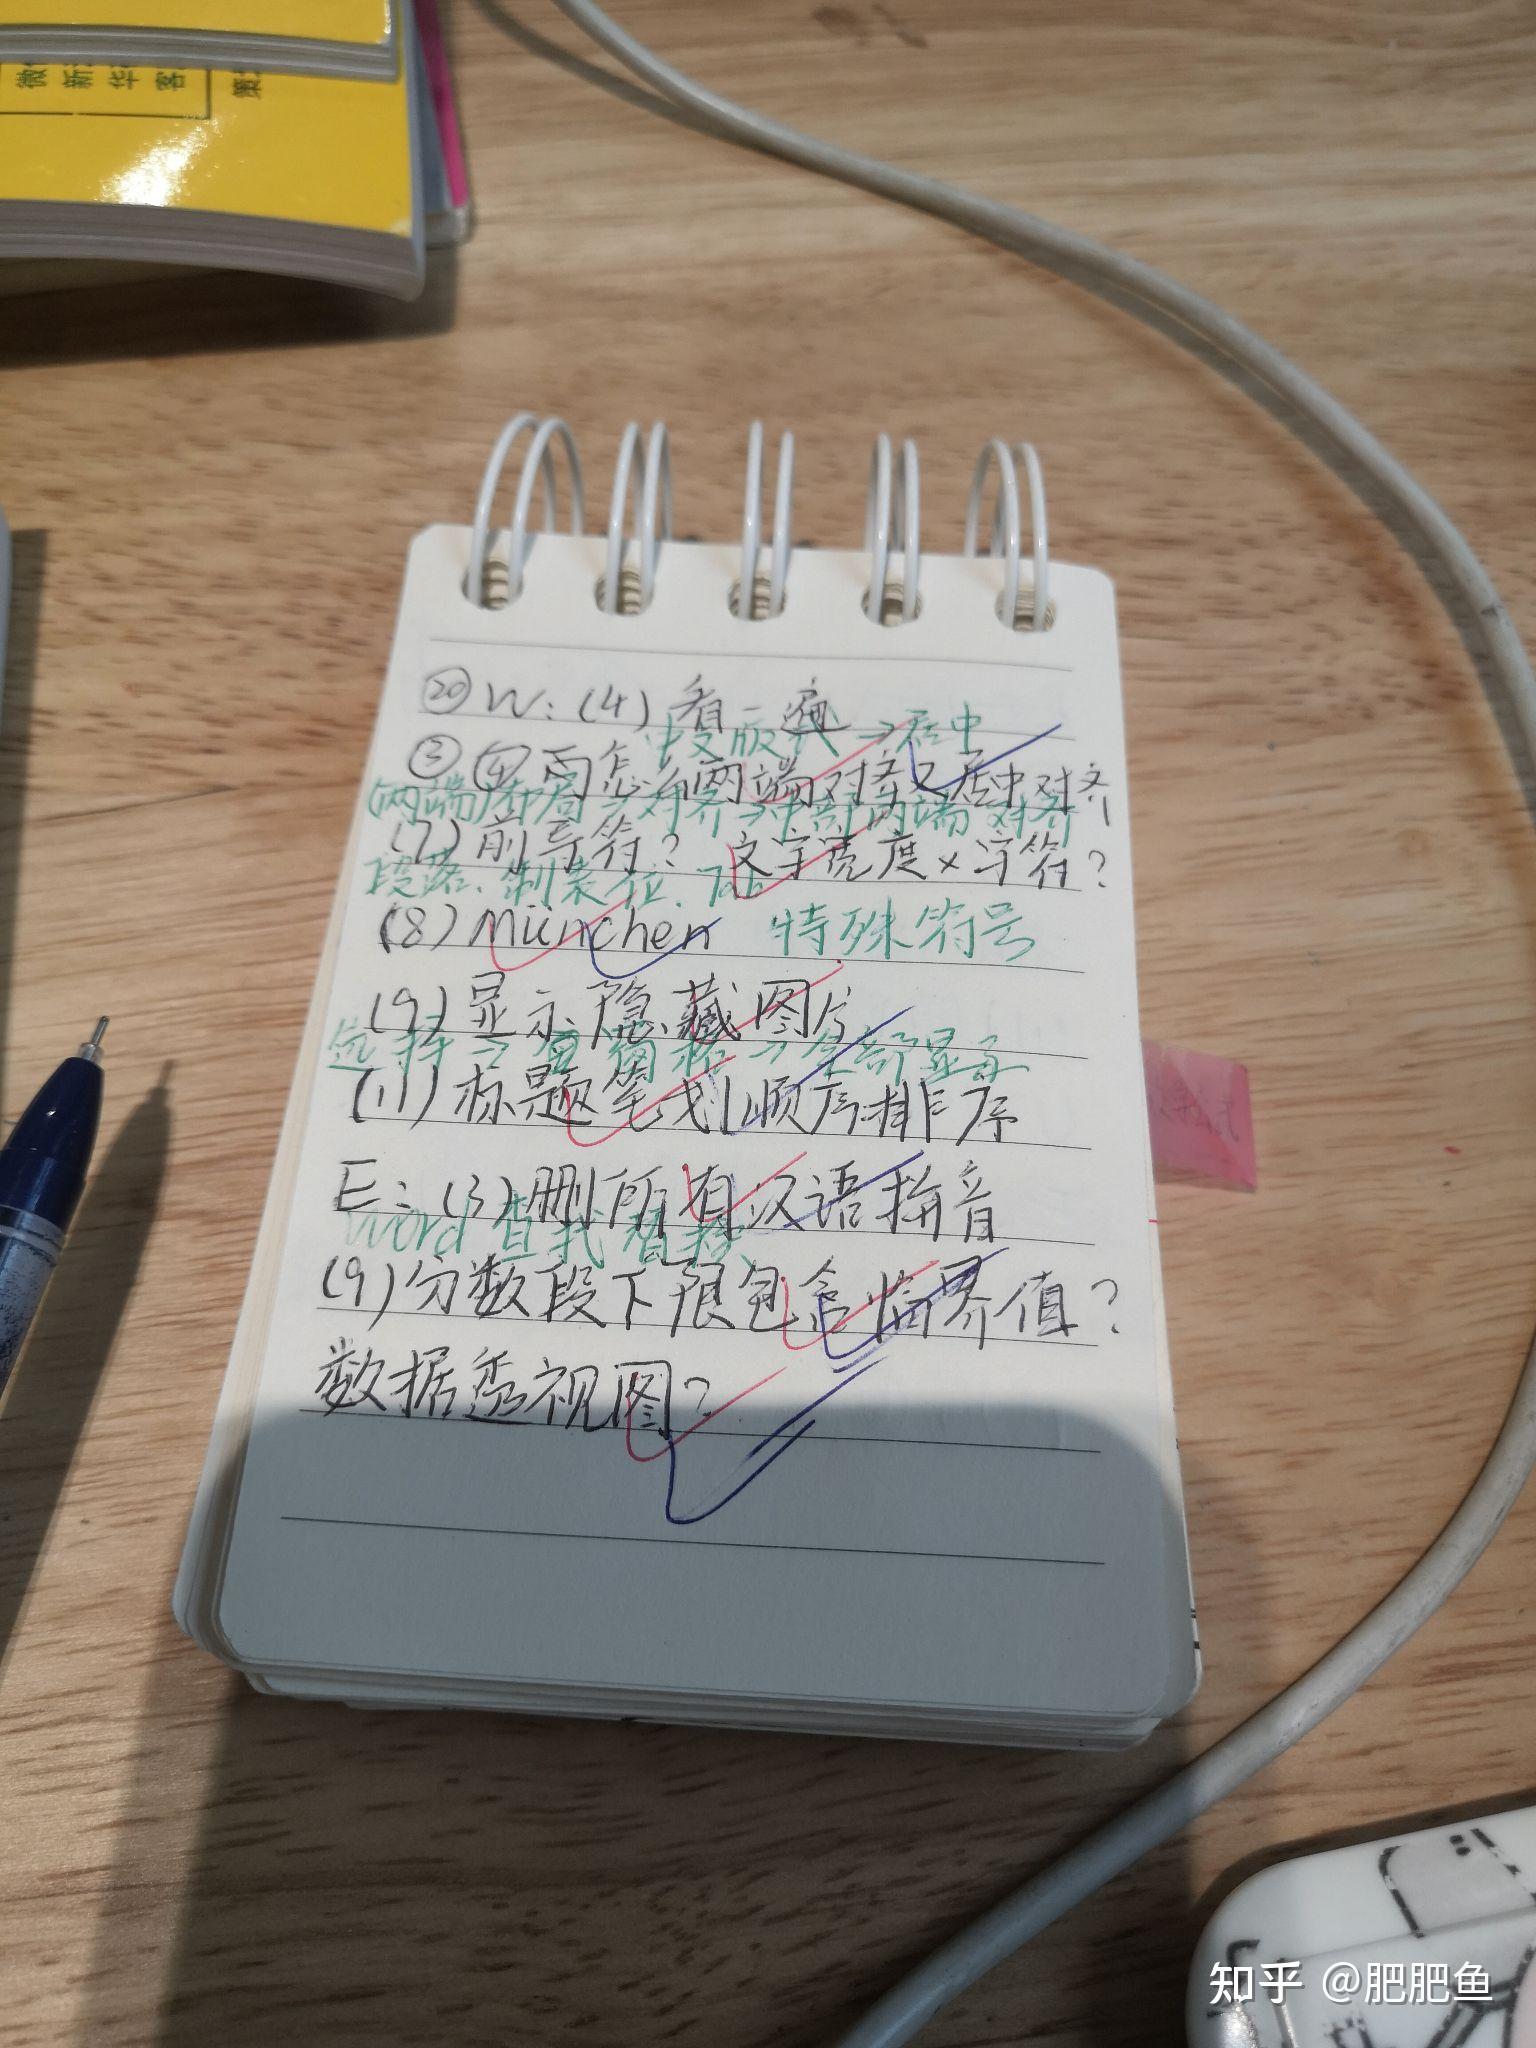 微
新
华
客
策
⑳ W:(4)看一遍
中文版式→居中
③ ④ 而怎么两端对齐又居中对齐
(两端)布局→对齐→中部两端对齐
(7)前导符? 文字宽度×字符?
段落.制表位.Tab
(8)München 特殊符号
(9)显示隐藏图片
选择→窗格→全部显示
(11)标题笔划顺序排序
E:(3)删所有汉语拼音
word查找替换
(9)分数段下限包含临界值?
数据透视图?
知乎 @肥肥鱼